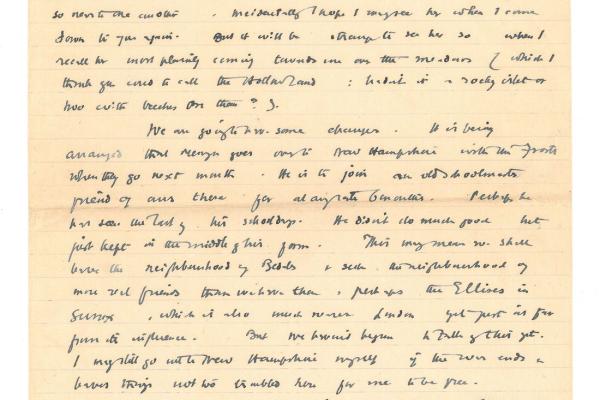 so near to one another. Incidentally I hope I may see her when I come
down to you again. But it will be strange to see her so when I
recall her most plainly coming towards me over the meadows (which I
think you used to call the Holland : hadn't it a rocky islet or
two with beeches on them?).
We are going to have some changes. It is being
arranged that Mervyn goes over to New Hampshire with the Frosts
when they go next month. He is to join an old schoolmaster
friend of ours there for at any rate 6 months. Perhaps he
has seen the last of his schooldays. He didn't do much good but
just kept in the middle of his form. This may mean we shall
leave the neighbourhood of Bedales & seek the neighbourhood of
more real friends than we have there, perhaps the Ellises in
Sussex, which is also much nearer London yet just as far
from its influence. But we haven't begun to talk of this yet.
I may still go out to New Hampshire myself if the war ends &
leaves things not too troubled here for me to be free.